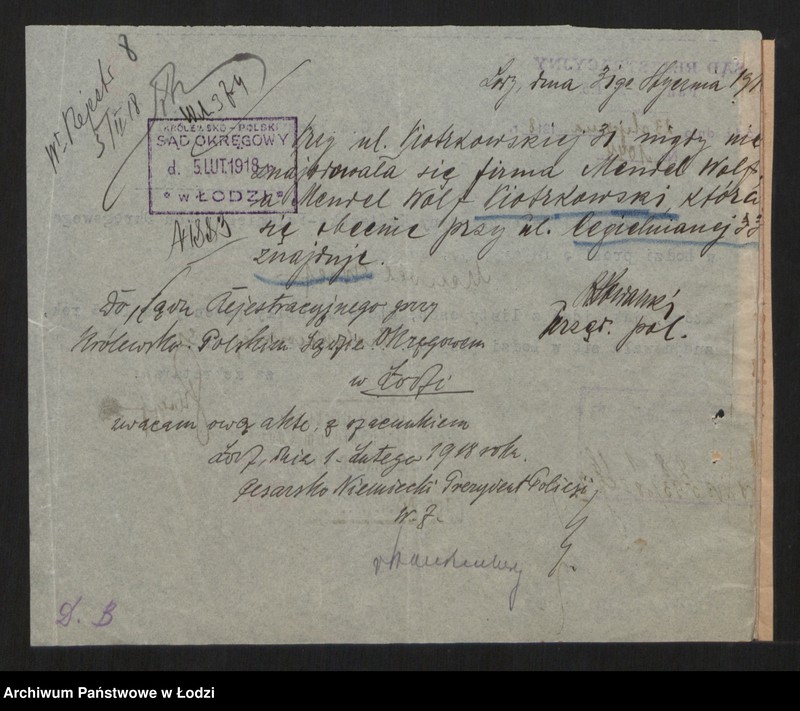 Wr. Rejestr 8
5/II 18
Łódź, dnia 31go Stycznia 191
KRÓLEWSKO-POLSKI
SĄD OKRĘGOWY
d. 5.LUT.1918
W ŁODZI
Przy ul. Piotrkowskiej 31 nigdy nie
znajdowała się firma Mendel Wolf,
a Mendel Wolf Piotrkowski, która
się obecnie przy ul. Cegielnianej 33
znajduje.
Do Sądu Rejestracyjnego przy
Królewsko-Polskim Sądzie Okręgowem
Urzęd. pol.
w Łodzi
zwracam owe akte, z szacunkiem
Łódź, dnia 1. Lutego 1918 roku.
Cesarsko Niemiecki Prezydent Policji
W. Z.
D. B
Archiwum Państwowe w Łodzi